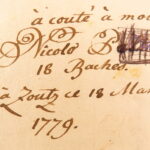 à couté à moi
Nicolo
18 Baches.
à Zoutz ce 18 Mar
1779.